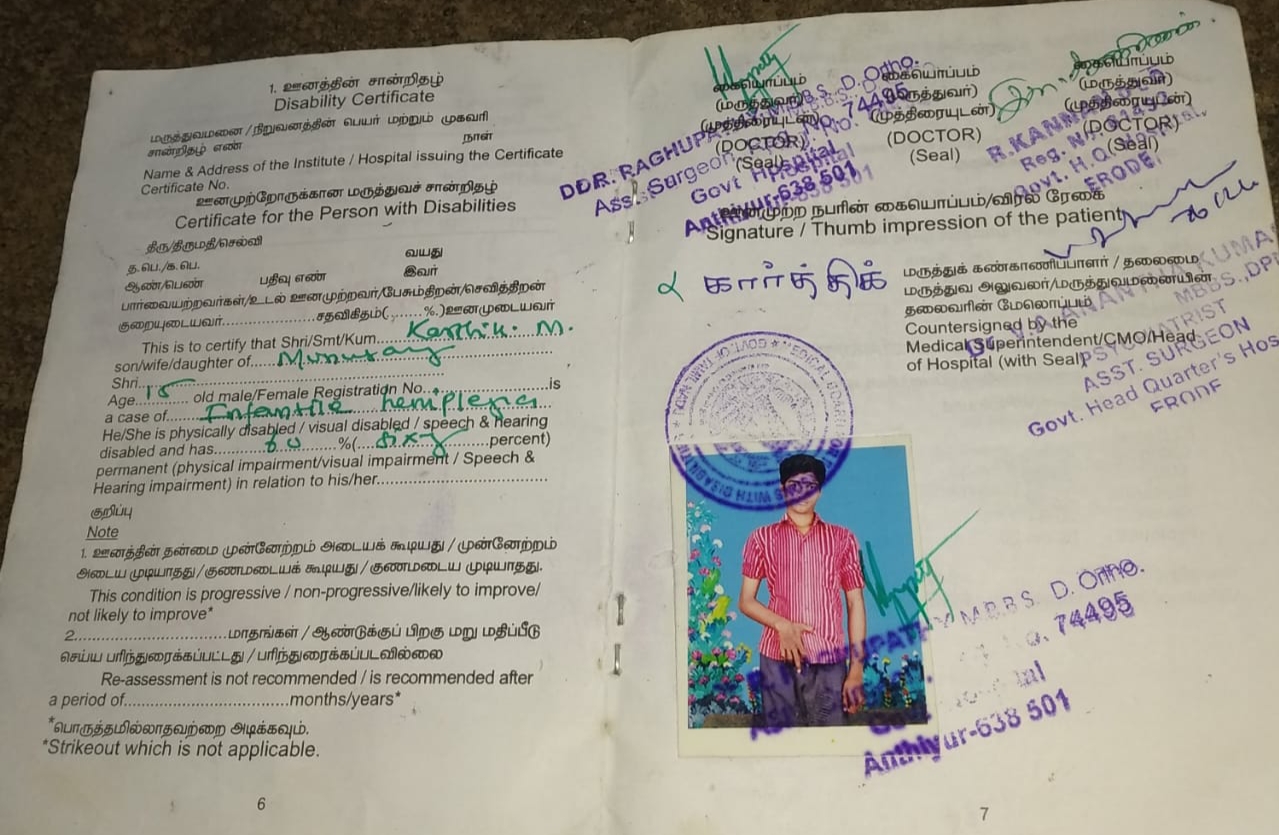 1. ஊனத்தின் சான்றிதழ்
Disability Certificate
மருத்துவமனை / நிறுவனத்தின் பெயர் மற்றும் முகவரி
சான்றிதழ் எண் நாள்
Name & Address of the Institute / Hospital issuing the Certificate
Certificate No.
ஊனமுற்றோருக்கான மருத்துவச் சான்றிதழ்
Certificate for the Person with Disabilities
திரு/திருமதி/செல்வி
த.பெ./க.பெ. வயது
ஆண்/பெண் பதிவு எண் இவர்
பார்வையற்றவர்கள்/உடல் ஊனமுற்றவர்/பேசும்திறன்/செவித்திறன்
குறையுடையவர்....................சதவிகிதம்(.......%.)ஊனமுடையவர்
This is to certify that Shri/Smt/Kum... Karthik. M.
son/wife/daughter of.....
Shri.............................
Age 15 old male/Female Registration No............is
a case of Infantile hemiplegia
He/She is physically disabled / visual disabled / speech & hearing
disabled and has....60....%(....sixty....percent)
permanent (physical impairment/visual impairment / Speech &
Hearing impairment) in relation to his/her...............................
குறிப்பு
Note
1. ஊனத்தின் தன்மை முன்னேற்றம் அடையக் கூடியது / முன்னேற்றம்
அடைய முடியாதது / குணமடையக் கூடியது / குணமடைய முடியாதது.
This condition is progressive / non-progressive/likely to improve/
not likely to improve*
2............................மாதங்கள் / ஆண்டுக்குப் பிறகு மறு மதிப்பீடு
செய்ய பரிந்துரைக்கப்பட்டது / பரிந்துரைக்கப்படவில்லை
Re-assessment is not recommended / is recommended after
a period of..............................months/years*
*பொருத்தமில்லாதவற்றை அடிக்கவும்.
*Strikeout which is not applicable.
6
கையொப்பம் கையொப்பம் கையொப்பம்
(மருத்துவர்) (மருத்துவர்) (மருத்துவர்)
(முத்திரையுடன்) (முத்திரையுடன்) (முத்திரையுடன்)
(DOCTOR) (DOCTOR) (DOCTOR)
(Seal) (Seal) (Seal)
M.B.B.S. D. Ortho.
74495
Ass.Surgeon
Govt Hospital
Anthiyur-638 501
Reg. No.
Govt. H.Q. Hospital,
ERODE.
ஊனமுற்ற நபரின் கையொப்பம்/விரல் ரேகை
Signature / Thumb impression of the patient
கார்த்திக்
மருத்துக் கண்காணிப்பாளர் / தலைமை
மருத்துவ அலுவலர்/மருத்துவமனையின்
தலைவரின் மேலொப்பம்
Countersigned by the
Medical Superintendent/CMO/Head
of Hospital (with Seal)
MBBS.,
PSYCHIATRIST
ASST. SURGEON
Govt. Head Quarter's
ERODE
M.B.B.S. D. Ortho.
74495
Anthiyur-638 501
7